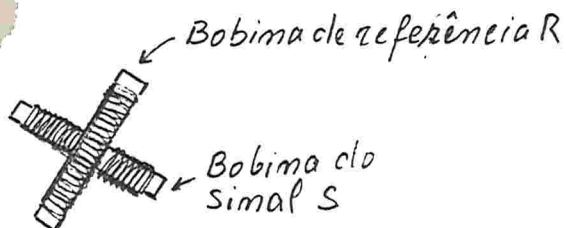 Bobina de referência R
Bobina do
sinal S